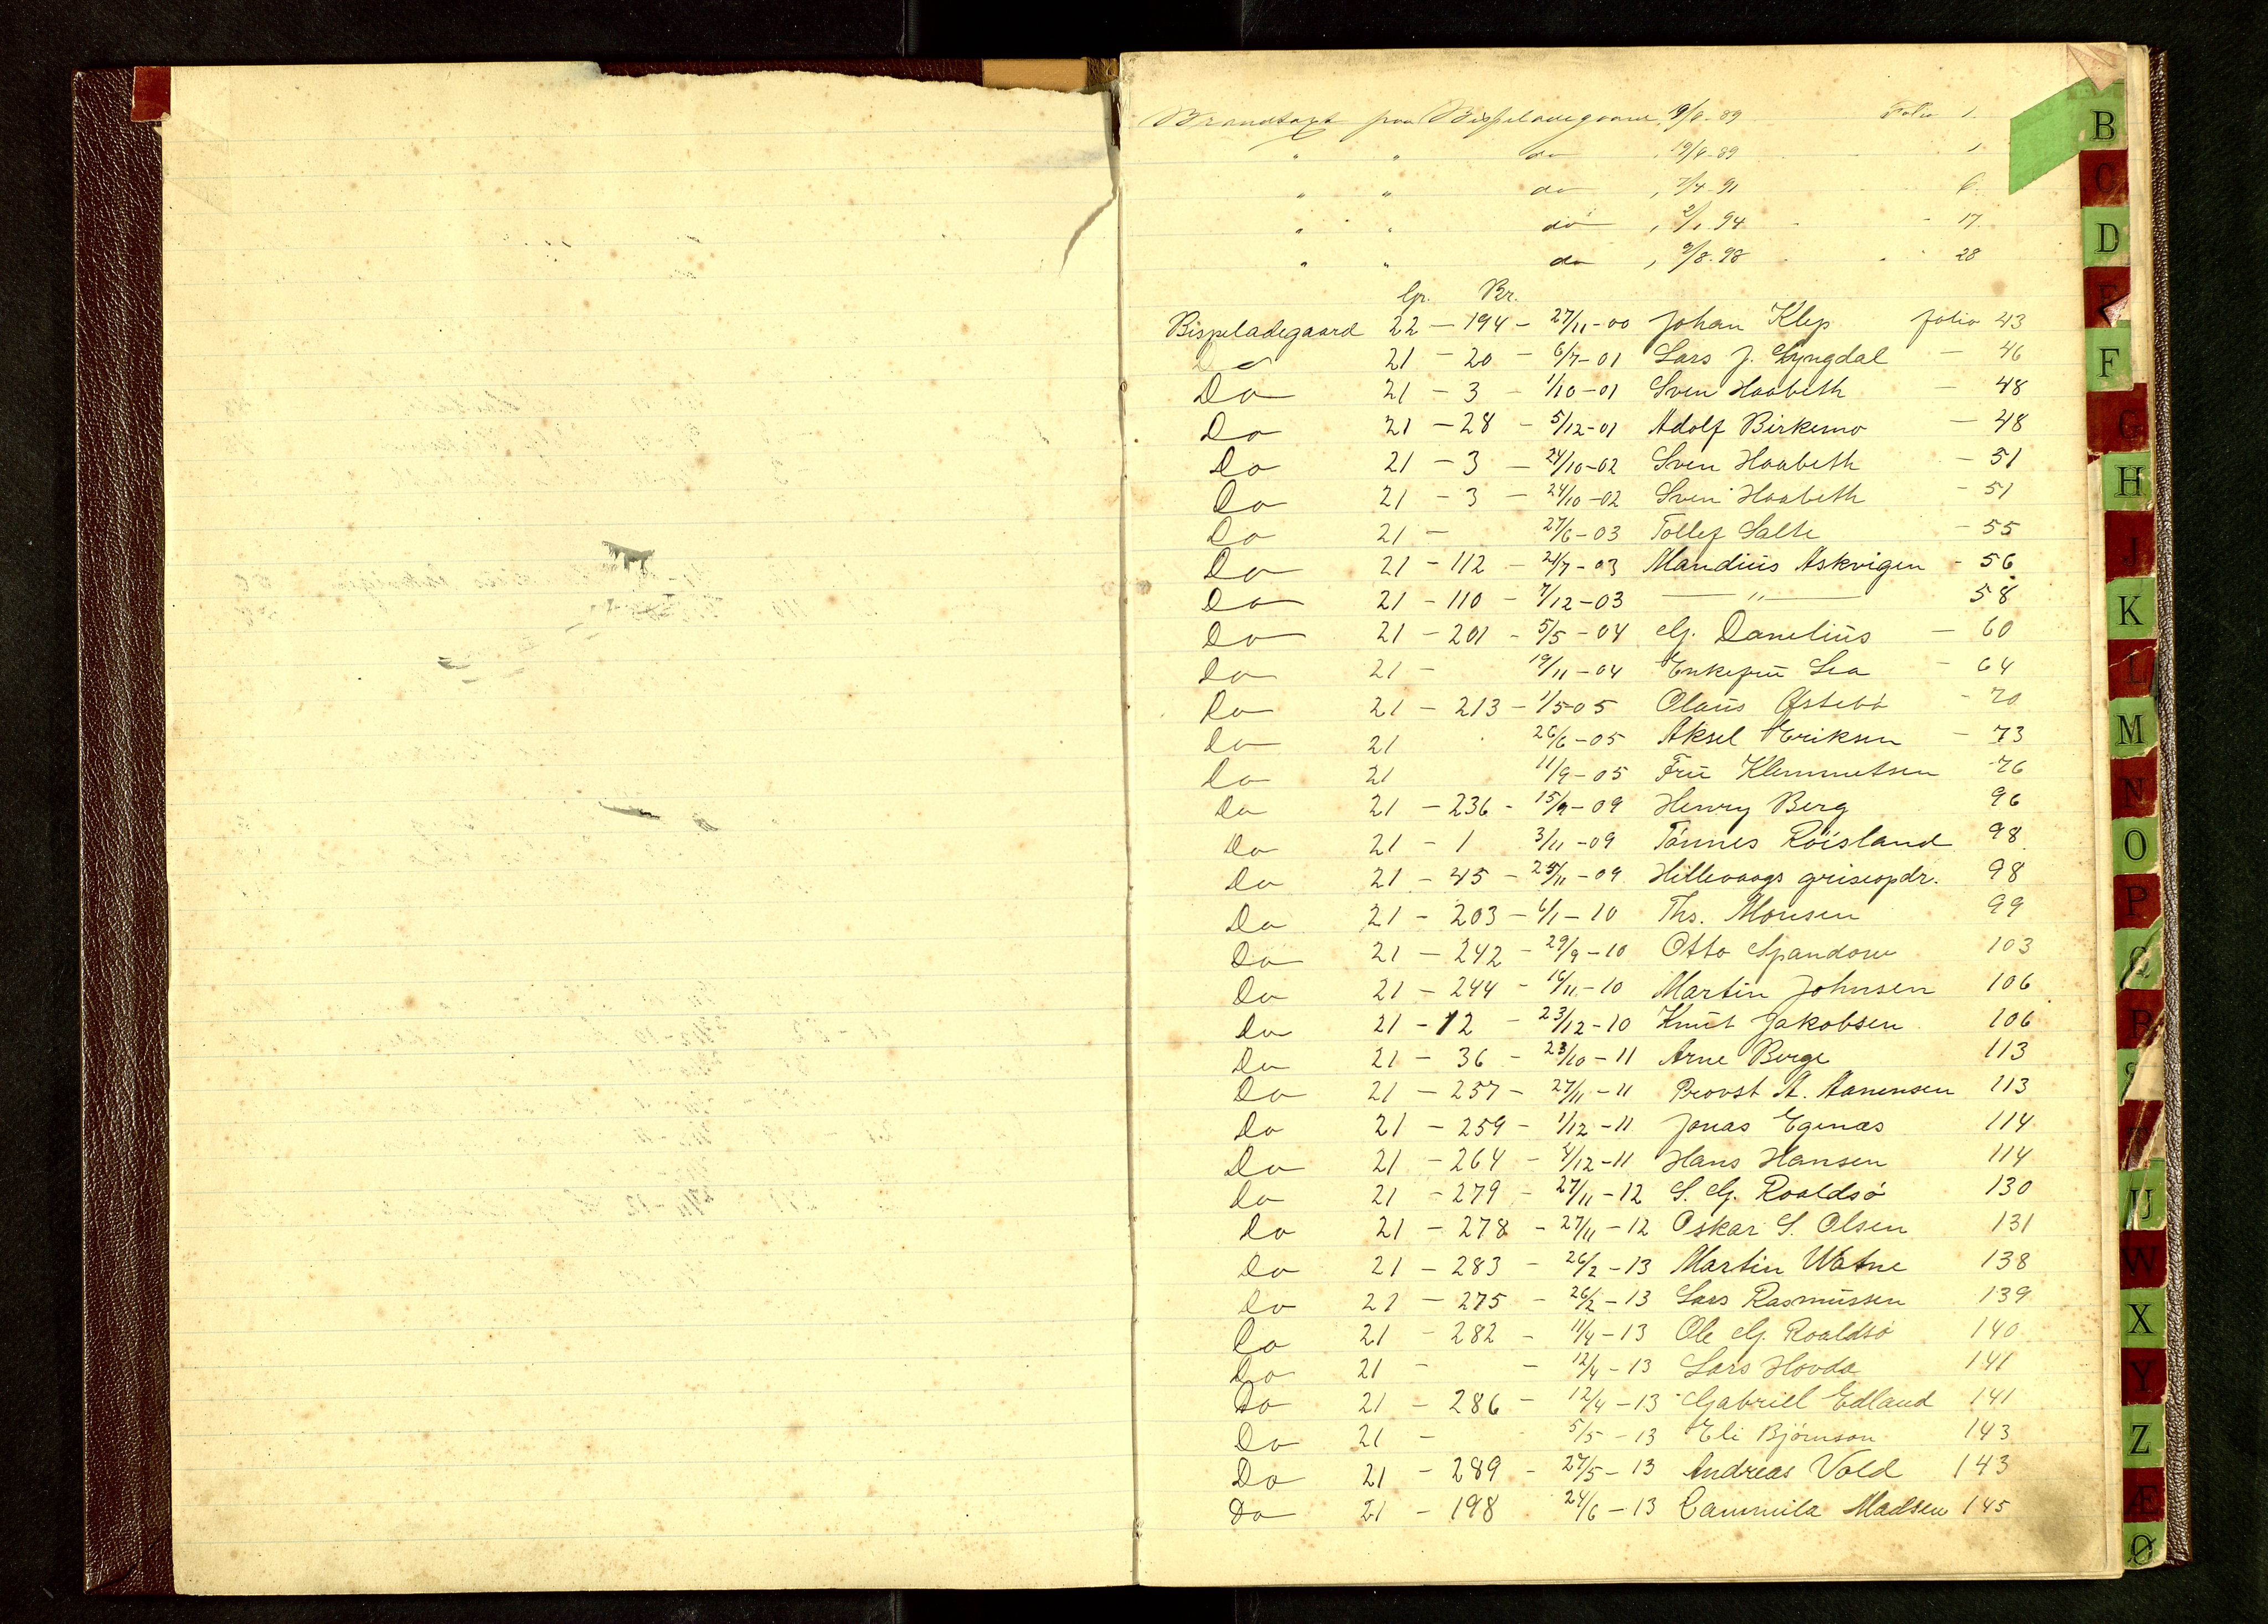 Brandtaxt paa Bispeladegaard, 19/6-89 Folio 1.
" " do , 19/6-89 1
" " do , 7/4-91 6.
" " do , 2/1.94 17.
" " do , 9/8.98 28
Gr. Br.
Bispeladegaard 22 - 194 - 27/11-00 Johan Klep folio 43
Do 21 - 20 - 6/7-01 Lars J. Lyngdal - 46
Do 21 - 3 - 1/10-01 Sven Haabeth - 48
Do 21 - 28 - 5/12-01 Adolf Birkemo - 48
Do 21 - 3 - 24/10-02 Sven Haabeth - 51
Do 21 - 3 - 24/10-02 Sven Haabeth - 51
Do 21 - 27/6-03 Tollef Salte - 55
Do 21 - 112 - 21/7-03 Mandius Askvigen - 56
Do 21 - 110 - 7/12-03 — " — 58
Do 21 - 201 - 5/5-04 G. Danelius - 60
Do 21 - 19/11-04 Enkefru Lea - 64
Do 21 - 213 - 1/5-05 Olaus Østebö - 70
Do 21 26/6-05 Aksel Eriksen - 73
Do 21 11/9-05 Fru Klemmetsen - 76
Do 21 - 236 - 15/9-09 Henry Berg 96
Do 21 - 1 3/11-09 Tönnes Röisland 98
Do 21 - 45 - 25/11-09 Hillevaags griseopdr. 98
Do 21 - 203 - 6/1-10 Ths. Monsen 99
Do 21 - 242 - 29/9-10 Otto Spandow 103
Do 21 - 244 - 16/11-10 Martin Johnsen 106
Do 21 - 12 - 23/12-10 Knut Jakobsen 106
Do 21 - 36 - 23/10-11 Arne Berge 113
Do 21 - 257 - 27/11-11 Provst A. Aanensen 113
Do 21 - 259 - 1/12-11 Jonas Egenæs 114
Do 21 - 264 - 4/12-11 Hans Hansen 114
Do 21 - 279 - 27/11-12 S. G. Roaldsö 130
Do 21 - 278 - 27/11-12 Oskar S. Olsen 131
Do 21 - 283 - 26/2-13 Martin Watne 138
Do 21 - 275 - 26/2-13 Lars Rasmussen 139
Do 21 - 282 - 11/4-13 Ole G. Roaldsö 140
Do 21 - - 12/4-13 Lars Hovda 141
Do 21 - 286 - 12/4-13 Gabriel Edland 141
Do 21 - 5/5-13 Eli Bjørnson 143
Do 21 - 289 - 27/5-13 Andreas Vold 143
Do 21 - 198 24/6-13 Cammila Madsen 145
B
C
D
E
F
G
H
J
K
L
M
N
O
P
Q
R
S
U
W
X
Y
Z
Æ
Ø